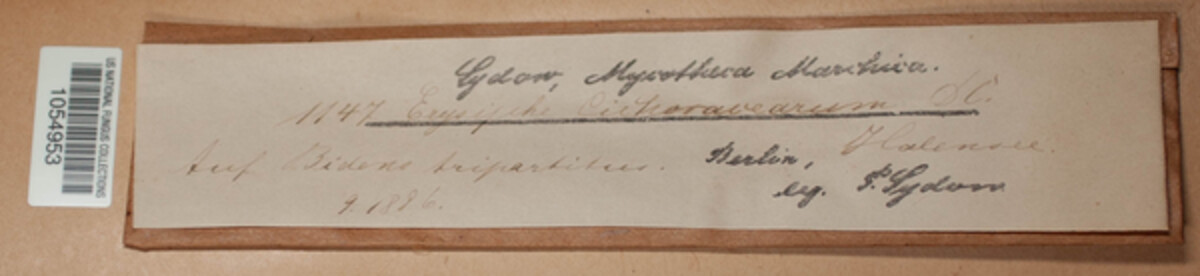 US NATIONAL FUNGUS COLLECTIONS
1054953
Sydow, Mycotheca Marchica.
1147 Erysiphe Cichoracearum DC.
Auf Bidens tripartitus. Berlin, Halensee.
9. 1886. leg. P. Sydow